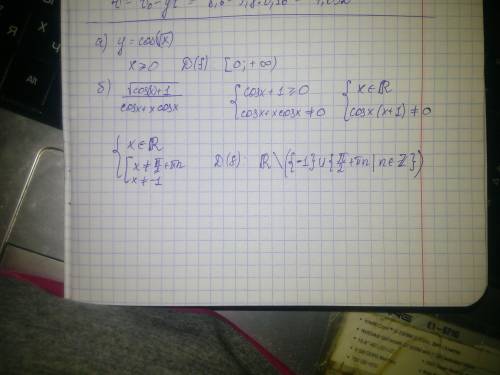 а) y = cos(√x)
x ≥ 0 D(f) [0; +∞)
б) √(cos(x)+1) / (cosx + x cosx) { cosx + 1 ≥ 0 { x ∈ ℝ
cosx + x cosx ≠ 0 cosx (x+1) ≠ 0
{ x ∈ ℝ
[ x ≠ π/2 + πn D(f): ℝ \ ({-1} ∪ {π/2 + πn | n ∈ ℤ})
x ≠ -1